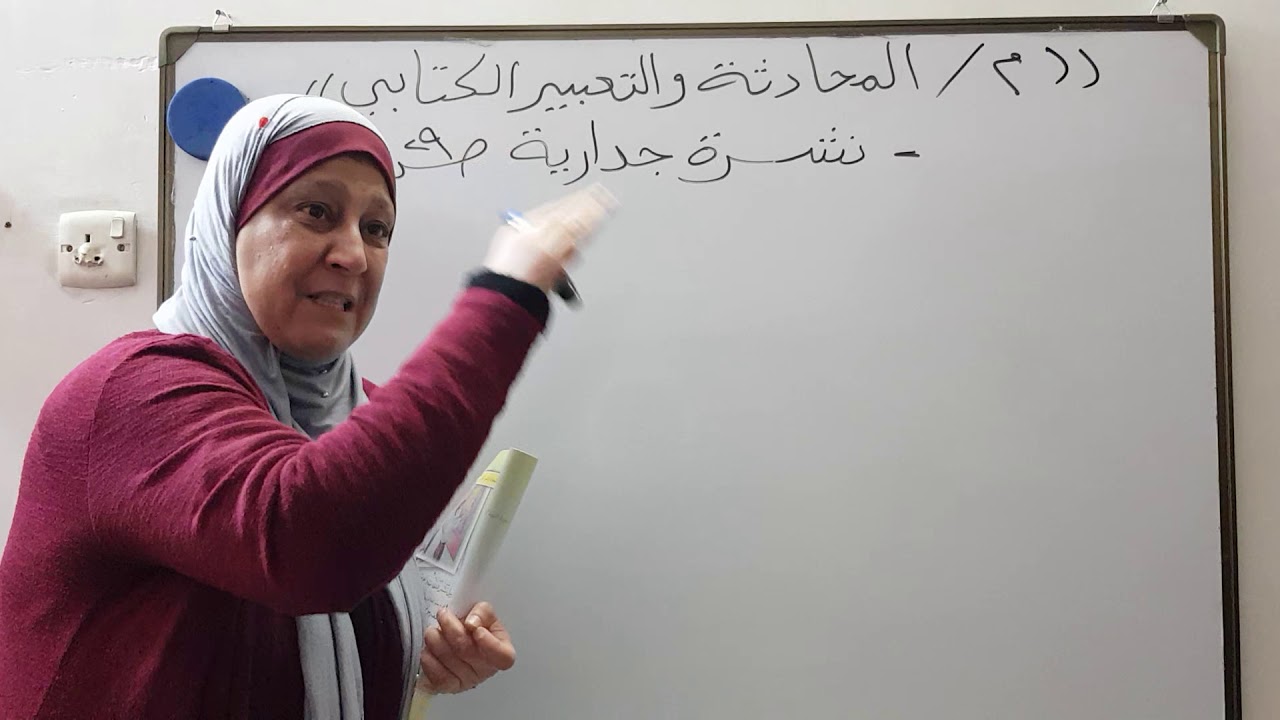 (( م / المحادثة والتعبير الكتابي ))
- نشرة جدارية ص٩